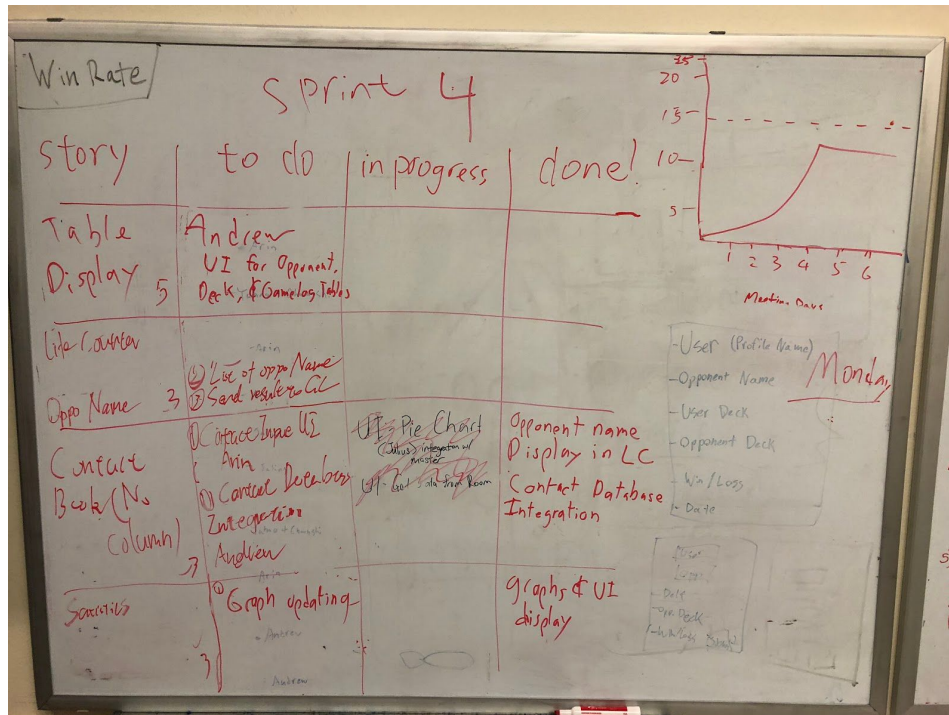 Win Rate
Sprint 4
story
to do
in progress
done!
Table
Display 5
Andrew
UI for Opponent,
Deck, & Gamelog Tables
Life Counter
Oppo Name 3
① List of oppo Name
② Send result to GL
Contact
Book (No
Column)
3
① Contact Input UI
Arin
① Contact Database
Integration
Andrew
UI - Pie Chart
integration w/
master
UI - Get Data from Room
Opponent name
Display in LC
Contact Database
Integration
Statistics
3
① Graph updating
Andrew
Andrew
graphs & UI
display
20
15
10
5
1 2 3 4 5 6
Meeting Days
- User (Profile Name)
- Opponent Name
- User Deck
- Opponent Deck
- Win/Loss
- Date
Monday
- Date